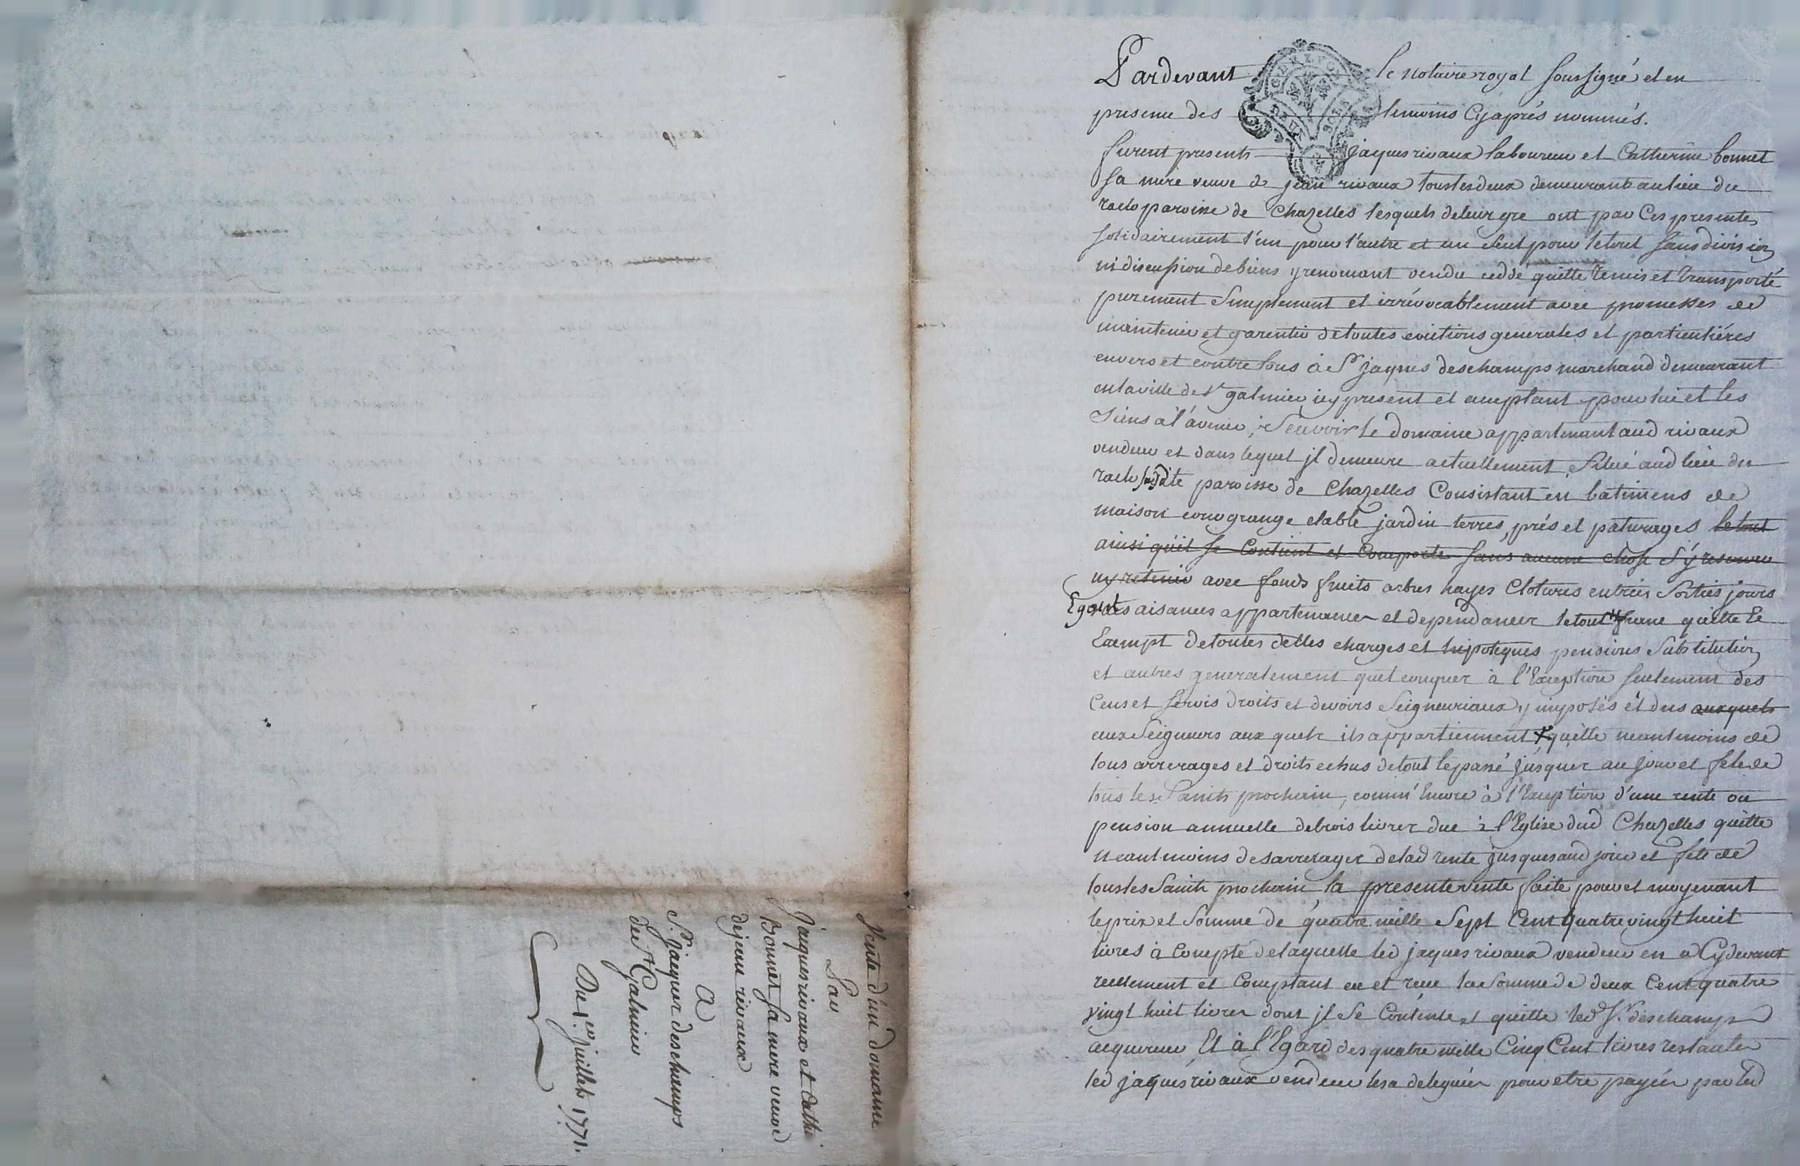 Pardevant le notaire royal soussigné et en
presence des temoins Cyaprés nommés.
furent presents jaques rivaux laboureur et Catherine bonnet
sa mere veuve de jean rivaux tous les deux demeurants au lieu du
paroisse de Chazelles lesquels de leur gre ont par Ces presentes
solidairement l'un pour l'autre et un seul pour le tout sans division
ni discussion de biens y renoncant vendu ceddé quitté remis et transporté
purement simplement et irrévocablement avec promesses de
maintenir et garentir de toutes evictions generales et particuliéres
envers et contre tous à Sr jaques deschamps marchand demeurant
en la ville de St galmier icy present et acceptant pour lui et les
siens à l'avenir, scavoir le domaine appartenant aud rivaux
vendeur et dans lequel jl demeure actuellement situé aud lieu du
susdite paroisse de Chazelles Consistant en bâtimens de
maison grange etable jardin terres, prés et paturages le tout
ainsi qu'il se Contient et Comporte sans aucune chose s'y reserver
ny retenir avec fonds fruits arbres hayes Clotures entrées sorties jours
Egouts aisances appartenances et dependances le tout franc quitte et
Exempt de toutes dettes charges et hipoteques pensions substitution
et autres generalement quelconques à l'Exception seulement des
Cens et servis droits et devoirs seigneuriaux y imposés et dus auxquels
aux seigneurs aux quels ils appartiennent quitte neantmoins de
tous arrerages et droits echus de tout le passé jusques au jour et fete de
tous les saints prochain, comm'Encore à l'Exception d'une rente ou
pension annuelle de trois livres due à l'Eglise dud Chazelles quitte
neantmoins des arrerages de lad rente jusques aud jour et fete de
tous les saints prochain la presente vente faite pour et moyenant
le prix et somme de quatre mille sept Cent quatre vingt huit
livres à Compte de laquelle led jaques rivaux vendeur en a Cydevant
reellement et Comptant eu et recu la somme de deux Cent quatre
vingt huit livres dont jl se Contente et quitte led Sr deschamps
acquereur Et à l'Egard des quatre mille Cinq Cent livres restantes
led jaques rivaux vendeur les a deleguées pour etre payées par led
Vente d'un domaine
Par
Jacques rivaux et Cathe
Bonnet sa mere veuve
de jean rivaux
A
Sr jacques deschamps
de St Galmier
Du 1er juillet 1771.